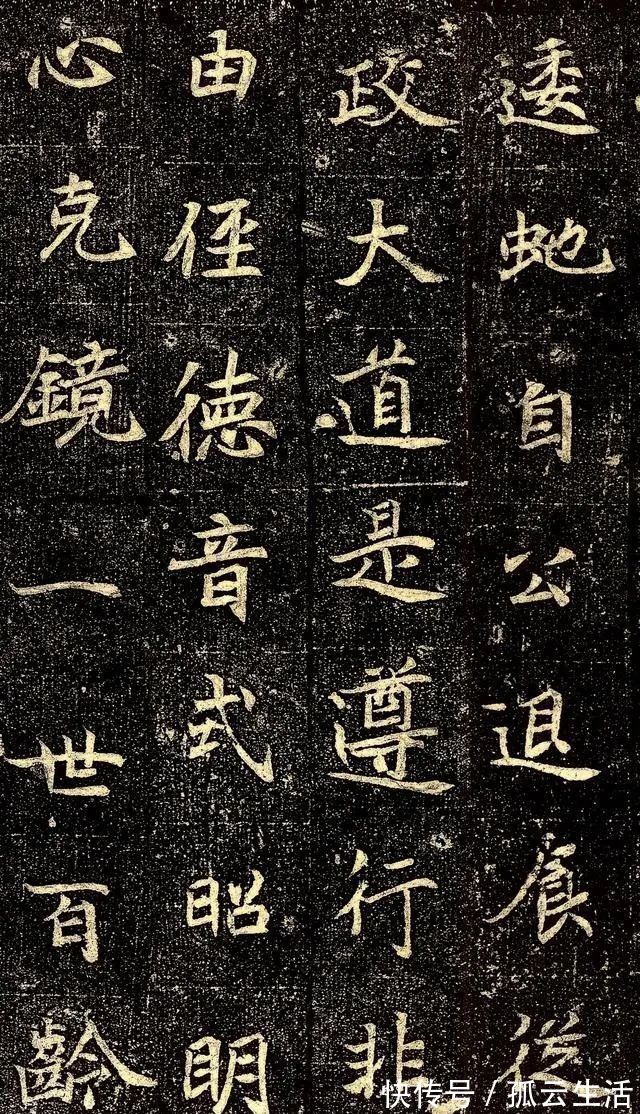 逶虵自公退食從
政大道是遵行非
由径德音式昭明
心克鏡一世百齡
快传号／孤云生活